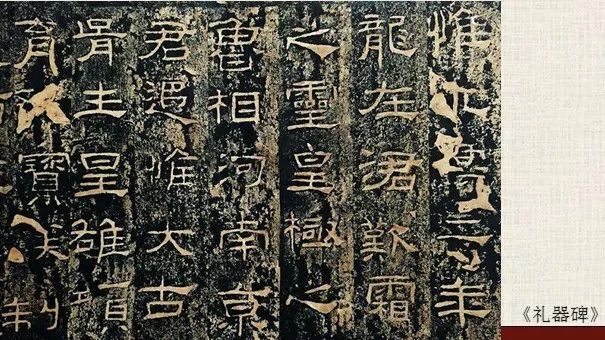 惟永壽二年
龍在涒歎霜
之靈皇極之
魯相河南京
君追惟大古
胥生皇雄顏
育寶制
《礼器碑》